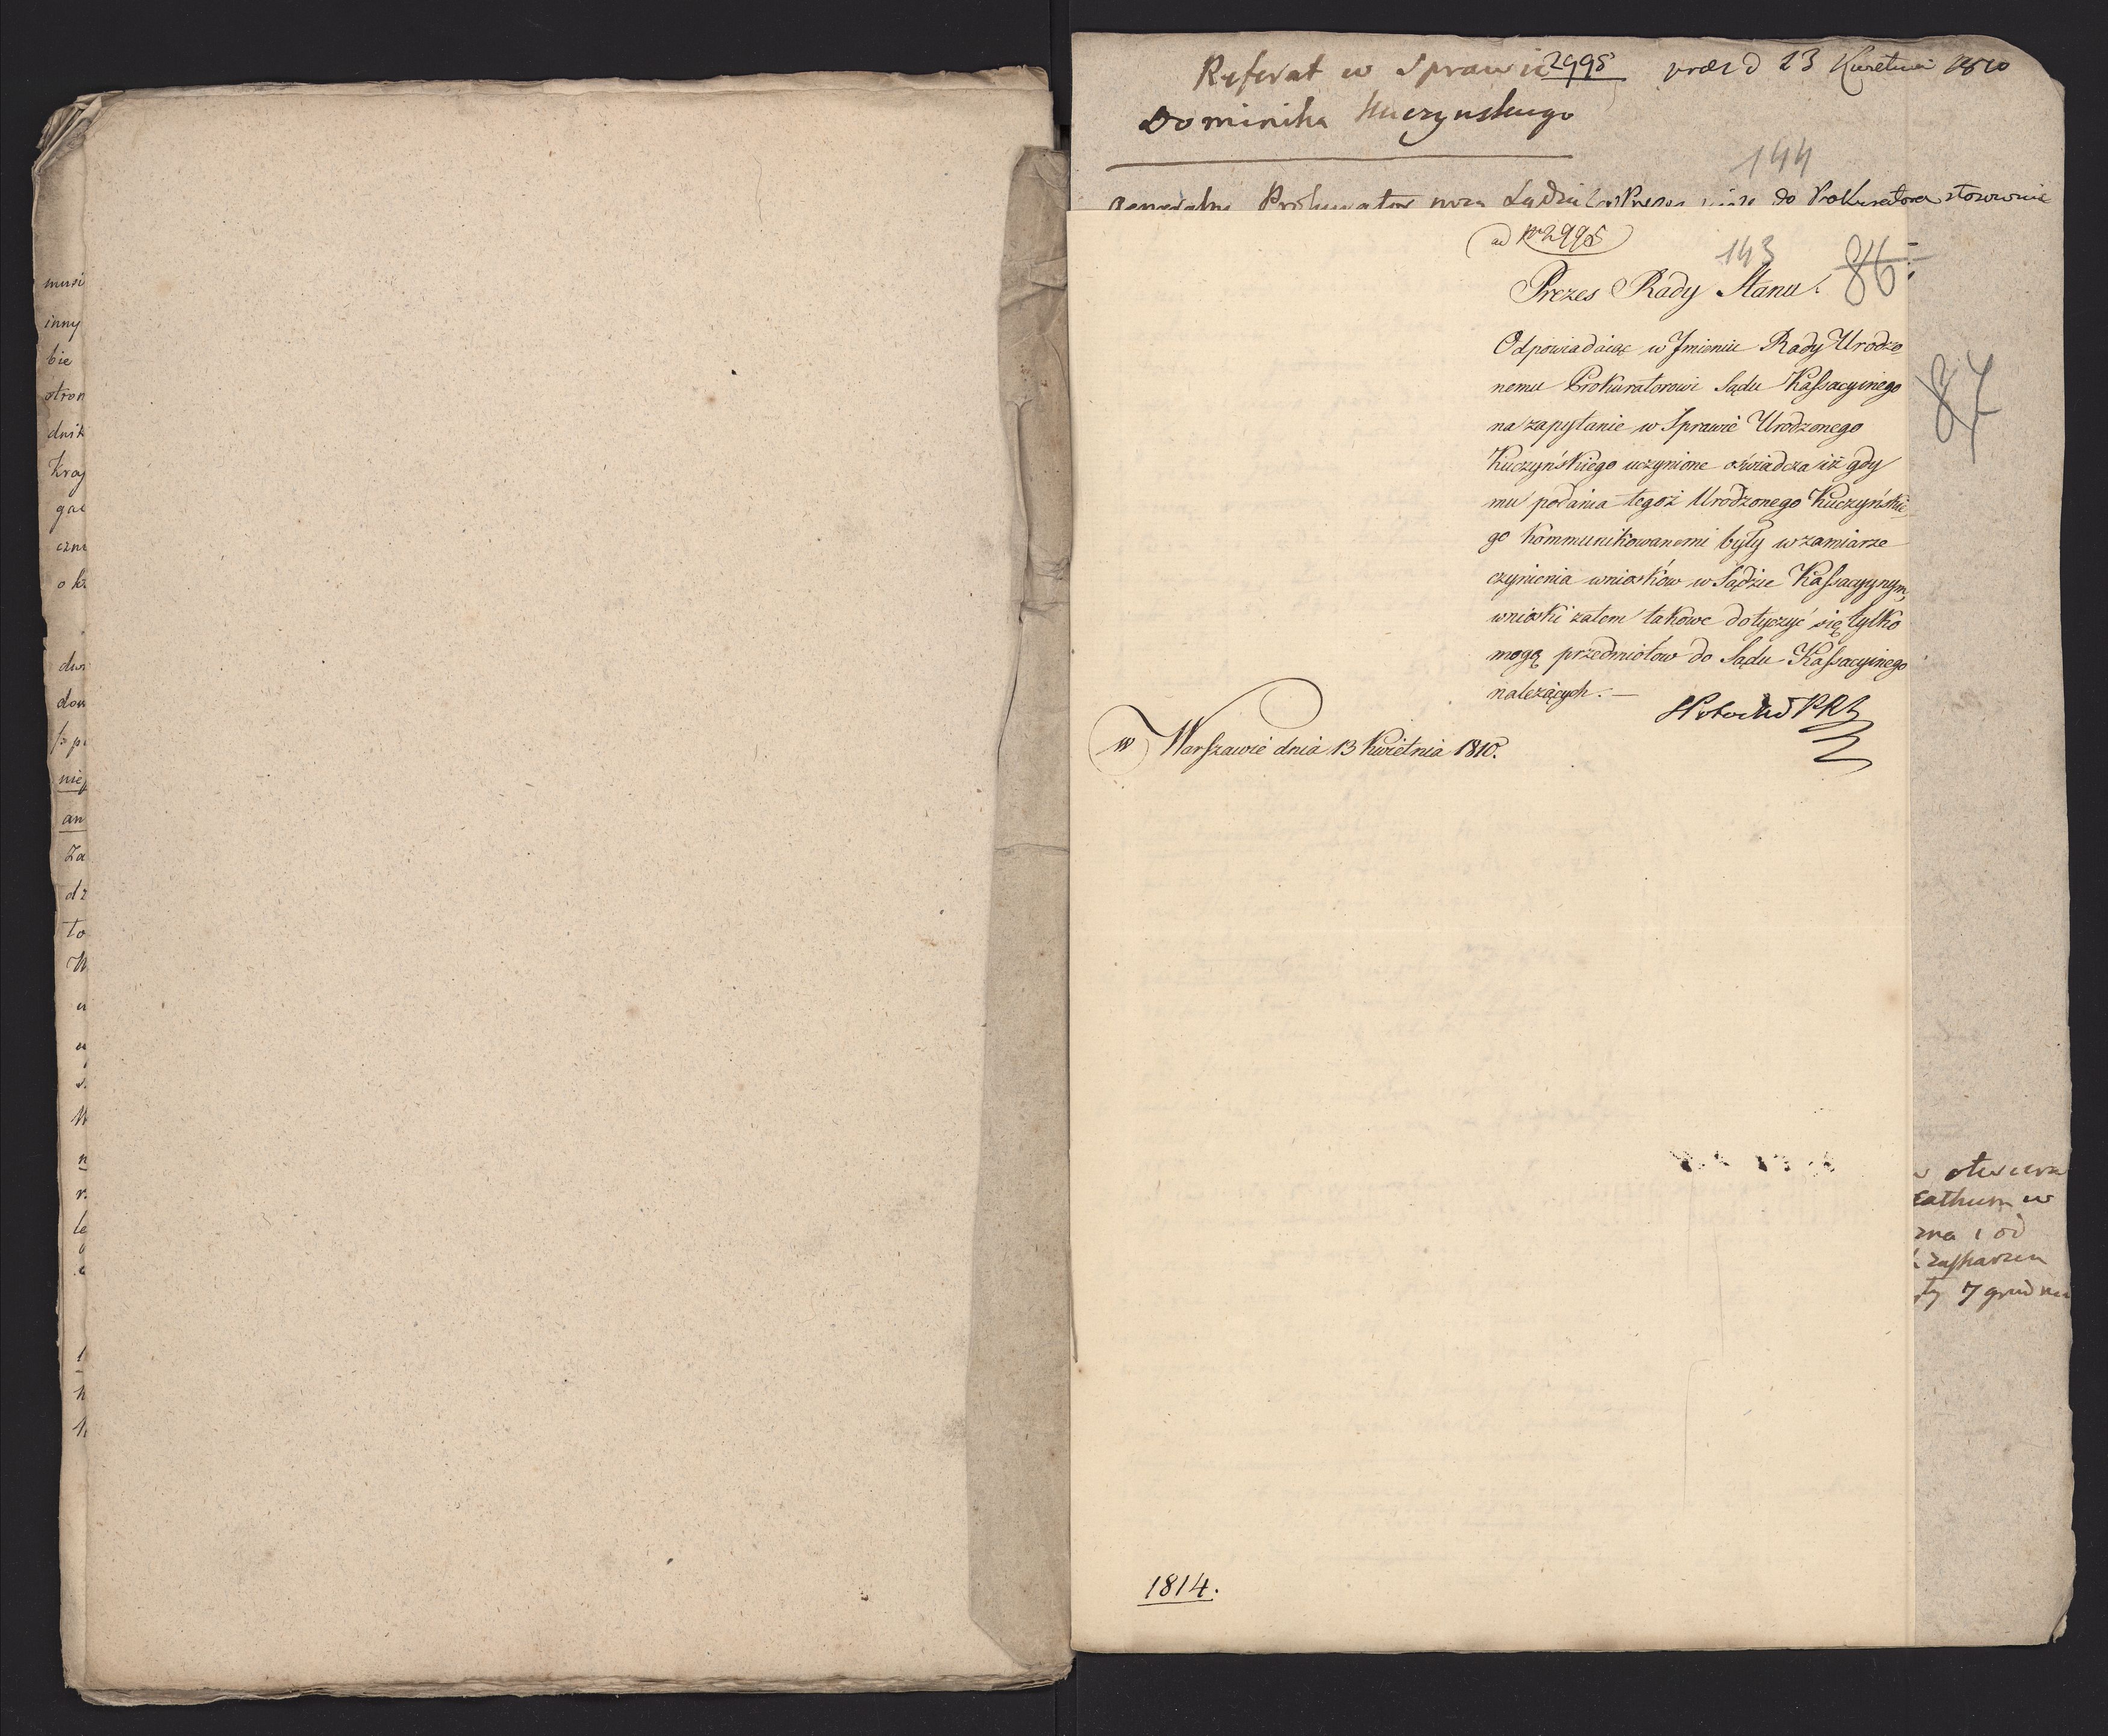 musi
inny
bie
stron
dnik
Kraj
gal
czni
o kr
dwi
dow
nie
an
Za
dz
to
W
u
M
n
r.
le
Referat w Sprawie 2998 praes d 23 Kwietnia 1810
Dominika Kuczynskiego
144
Generalny Prokurator przy Sądzie do Prokuratora stosownie
ad Nro 2998
143 86
Prezes Rady Stanu.
Odpowiadaiąc w Jmieniu Rady Urodzo
nemu Prokuratorowi Sądu Kassacyinego
87
na zapytanie w Sprawie Urodzonego
Kuczyńskiego uczynione oświadcza iż gdy
mu podania tegoż Urodzonego Kuczyńskie
go kommunikowanemi były w zamiarze
czynienia wniosków w Sądzie Kassacyynym,
wnioski zatem takowe dotyczyć się tylko
mogą przedmiotów do Sądu Kassacyinego
należących. —
SPotocki PRS
w Warszawie dnia 13 Kwietnia 1810.
w otwiera
w
zna i od
zaskarzen
ty 7 grudnia
1814.